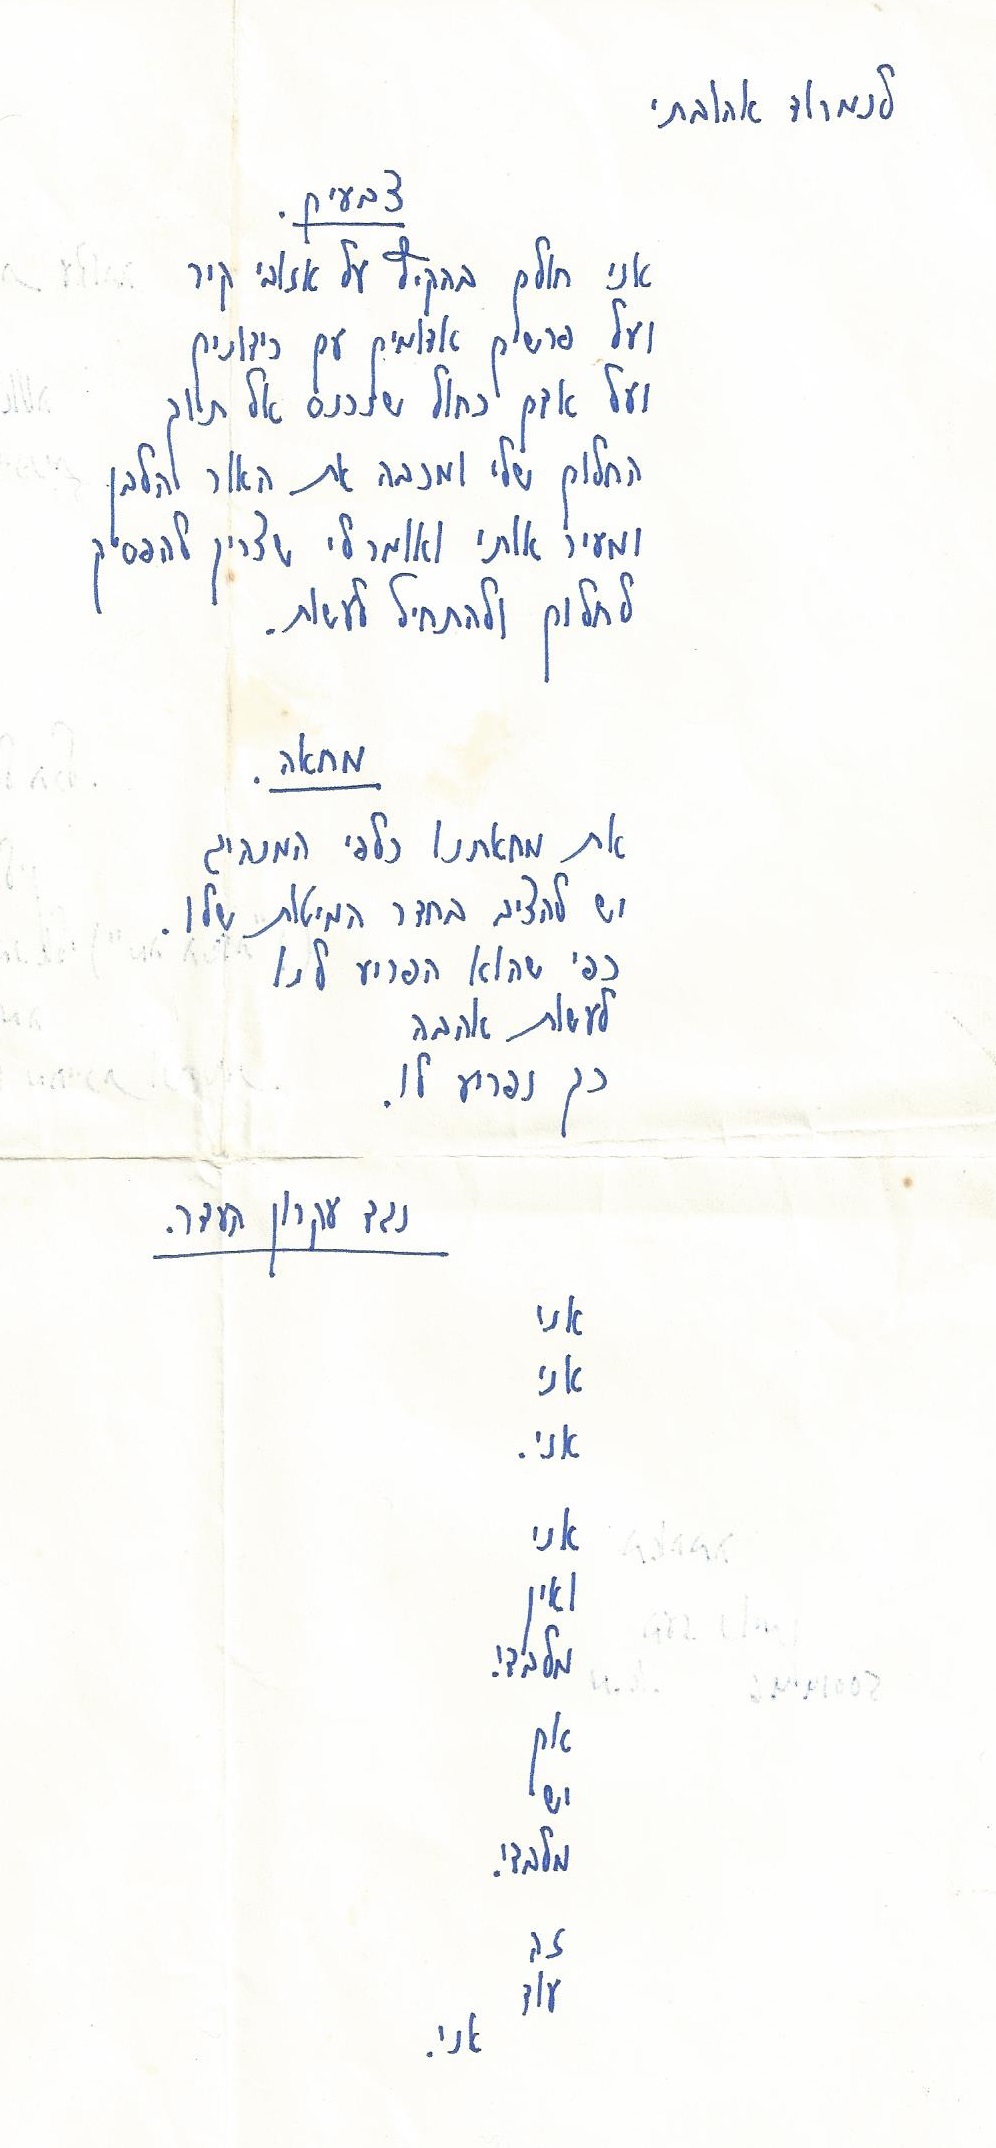 לנמרוד אהובתי
צבעים.
אני חולם בהקיץ על אזובי קיר
ועל פרשים אדומים עם כידונים
ועל אדם כחול שנכנס אל תוך
החלום שלי ומכבה את האור הלבן
ומעיר אותי ואומר לי שצריך להפסיק
לחלום ולהתחיל לעשות.
מחאה.
את מחאתנו כלפי המנהיג
יש להציב בחדר המיטות שלו.
כפי שהוא הפריע לנו
לעשות אהבה
כך נפריע לו.
נגד עקרון העדר.
אני
אני
אני.
אני
ואין
מלבדי.
אם
יש
מלבדי.
זה
עוד
אני.